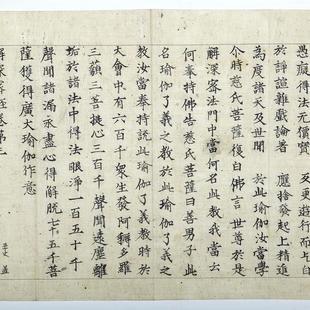 愚癡得法无價寶 反更遊行而乞匃
於諍諠雜戲論著 應捨發起上精進
為度諸天及世間 於此瑜伽汝當學
尒時慈氏菩薩復白佛言世尊於是
解深密法門中當何名此教我當云
何奉持佛告慈氏菩薩曰善男子此
名瑜伽了義之教於此瑜伽了義之
教汝當奉持說此瑜伽了義教時於
大會中有六百千衆生發阿耨多羅
三藐三菩提心三百千聲聞遠塵離
垢於諸法中得法眼淨一百五十千
聲聞諸漏永盡心得解脫七十五千菩
薩獲得廣大瑜伽作意
解深密經卷第三